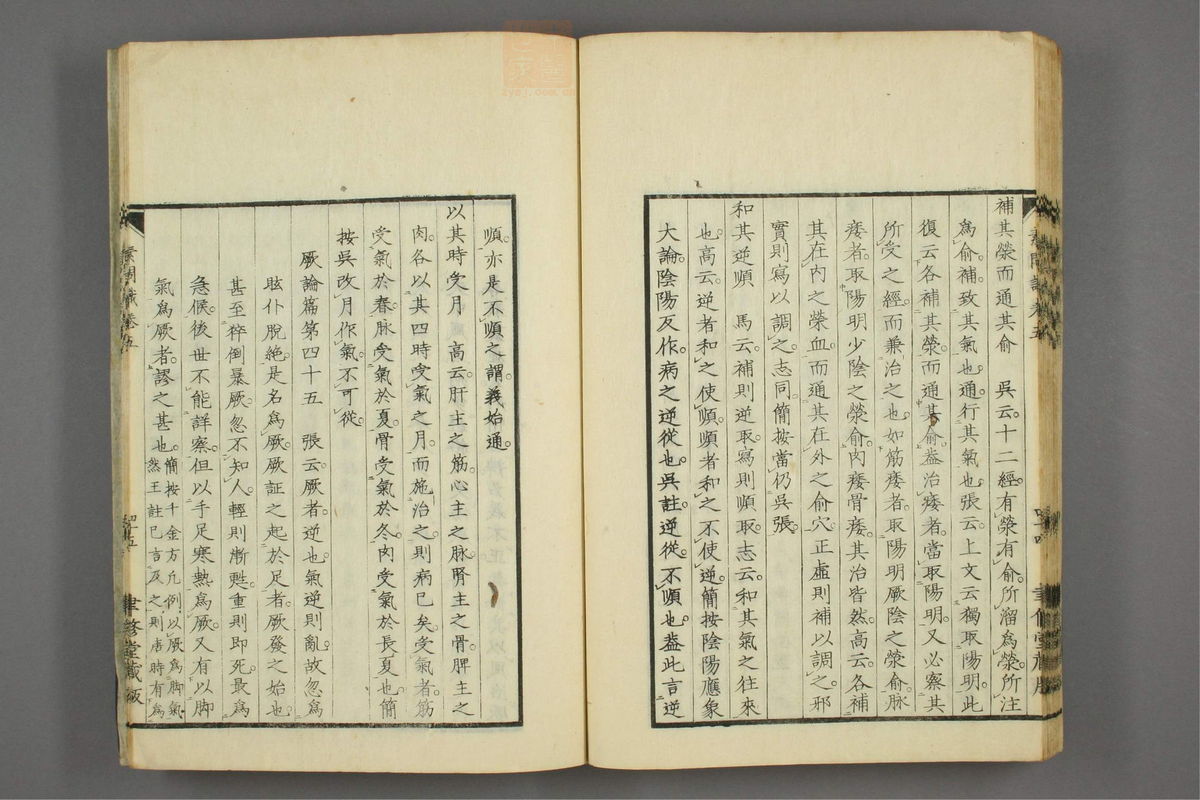 補其滎而通其俞　吳云。十二經。有滎有俞。所溜爲滎。所注
爲俞。補致其氣也。通行其氣也。張云。上文云獨取陽明。此
復云各補其滎而通其俞。葢治痿者。當取陽明。又必察其
所受之經。而兼治之也。如筋痿者。取陽明厥陰之滎俞。脉
痿者。取陽明少陰之滎俞。肉痿骨痿。其治皆然。高云。各補
其在內之榮血。而通其在外之俞穴。正虛則補以調之。邪
實則寫以調之。志同。簡按當仍吳張。
和其逆順　馬云。補則逆取。寫則順取。志云。和其氣之往來
也。高云。逆者和之使順。順者和之不使逆。簡按陰陽應象
大論。陰陽反作。病之逆從也。吳註。逆從。不順也。葢此言逆
順。亦是不順之謂。義始通。
以其時受月　高云。肝主之筋。心主之脉。腎主之骨。脾主之
肉。各以其四時受氣之月。而施治之。則病已矣。受氣者。筋
受氣於春。脉受氣於夏。骨受氣於冬。肉受氣於長夏也。簡
按吳改月作氣。不可從。
厥論篇第四十五　張云。厥者。逆也。氣逆則亂。故忽爲
眩仆脫絕。是名爲厥。厥証之起於足者。厥發之始也。
甚至猝倒暴厥。忽不知人。輕則漸甦。重則即死。最爲
急候。後世不能詳察。但以手足寒熱爲厥。又有以脚
氣爲厥者。謬之甚也。簡按千金方凡例。以厥爲脚氣
然王註已言及之。則唐時有爲
素問識卷五
四十五
聿修堂藏板